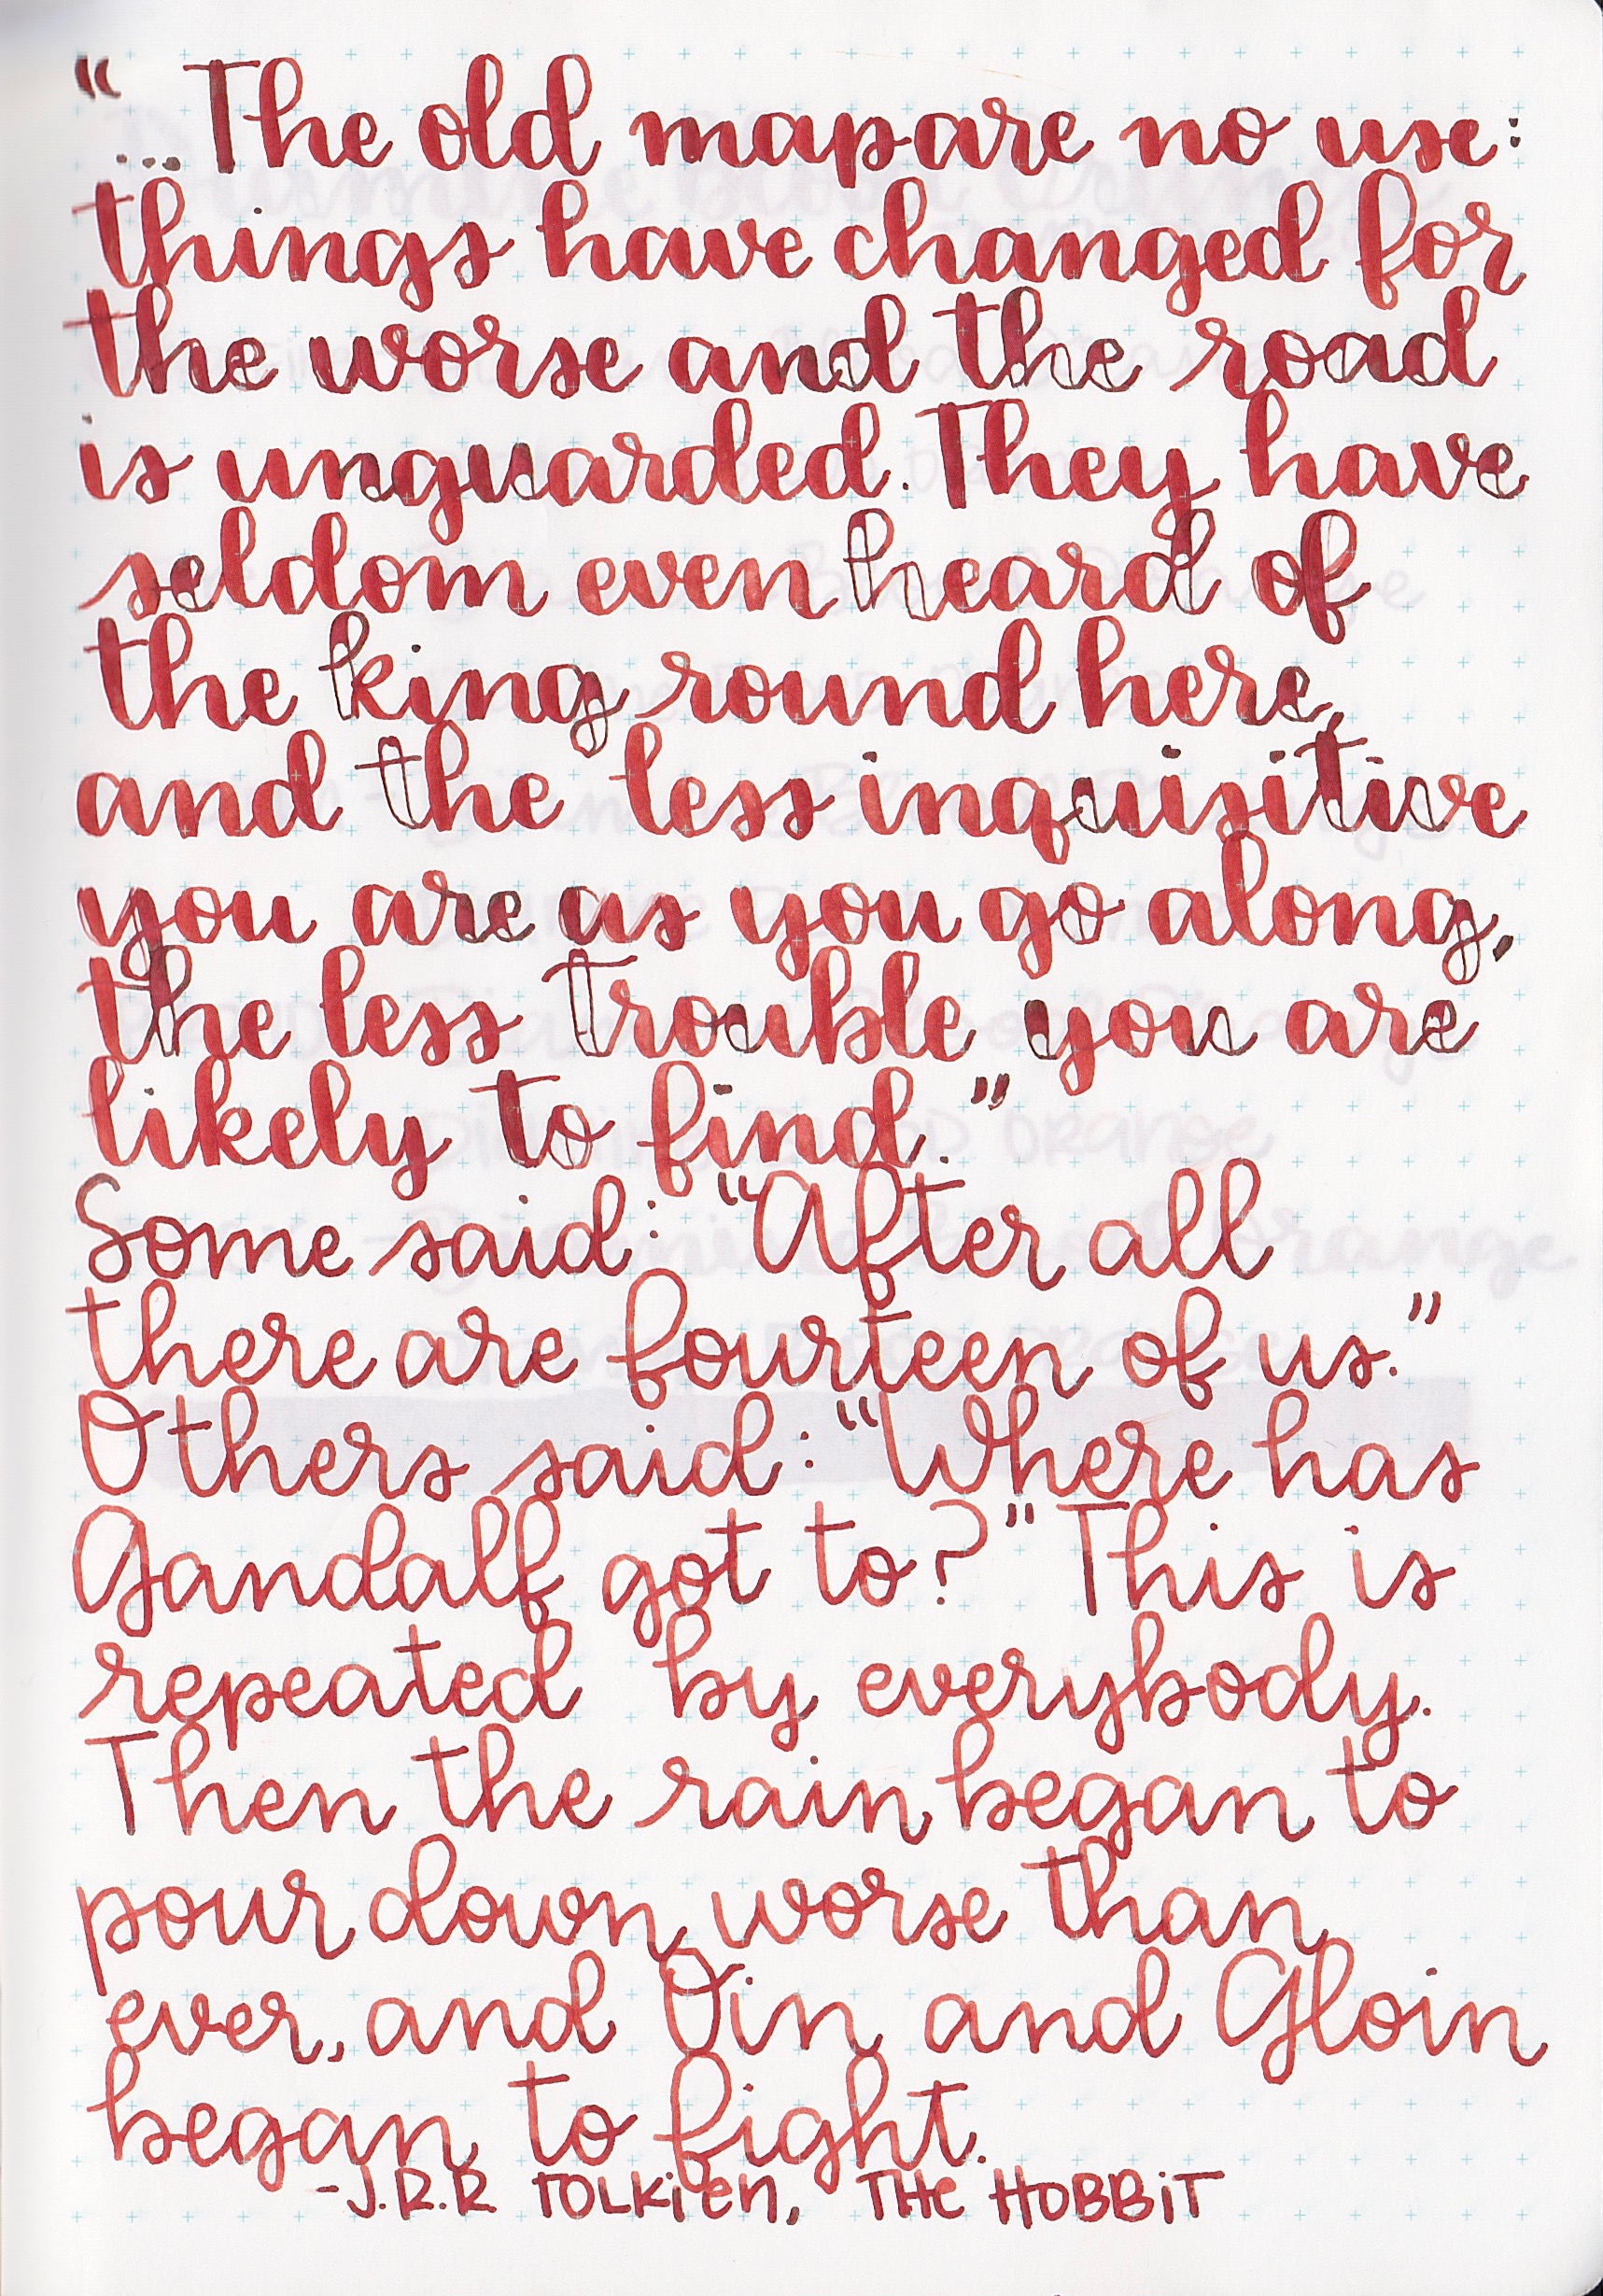 "...The old map are no use:
things have changed for
the worse and the road
is unguarded. They have
seldom even heard of
the king round here,
and the less inquisitive
you are as you go along,
the less trouble you are
likely to find."
Some said: "After all
there are fourteen of us."
Others said: "Where has
Gandalf got to?" This is
repeated by everybody.
Then the rain began to
pour down worse than
ever, and Oin and Gloin
began to fight.
-J.R.R TOLKiEN, THE HOBBiT